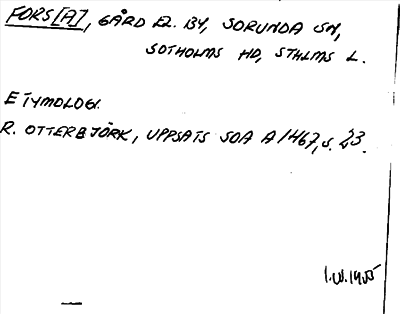 FORS[A], GÅRD EL. BY, SORUNDA SN,
SOTHOLMS HD, STHLMS L.
ETYMOLOGI.
R. OTTERBJÖRK, UPPSATS SOA A 1467, s. 23.